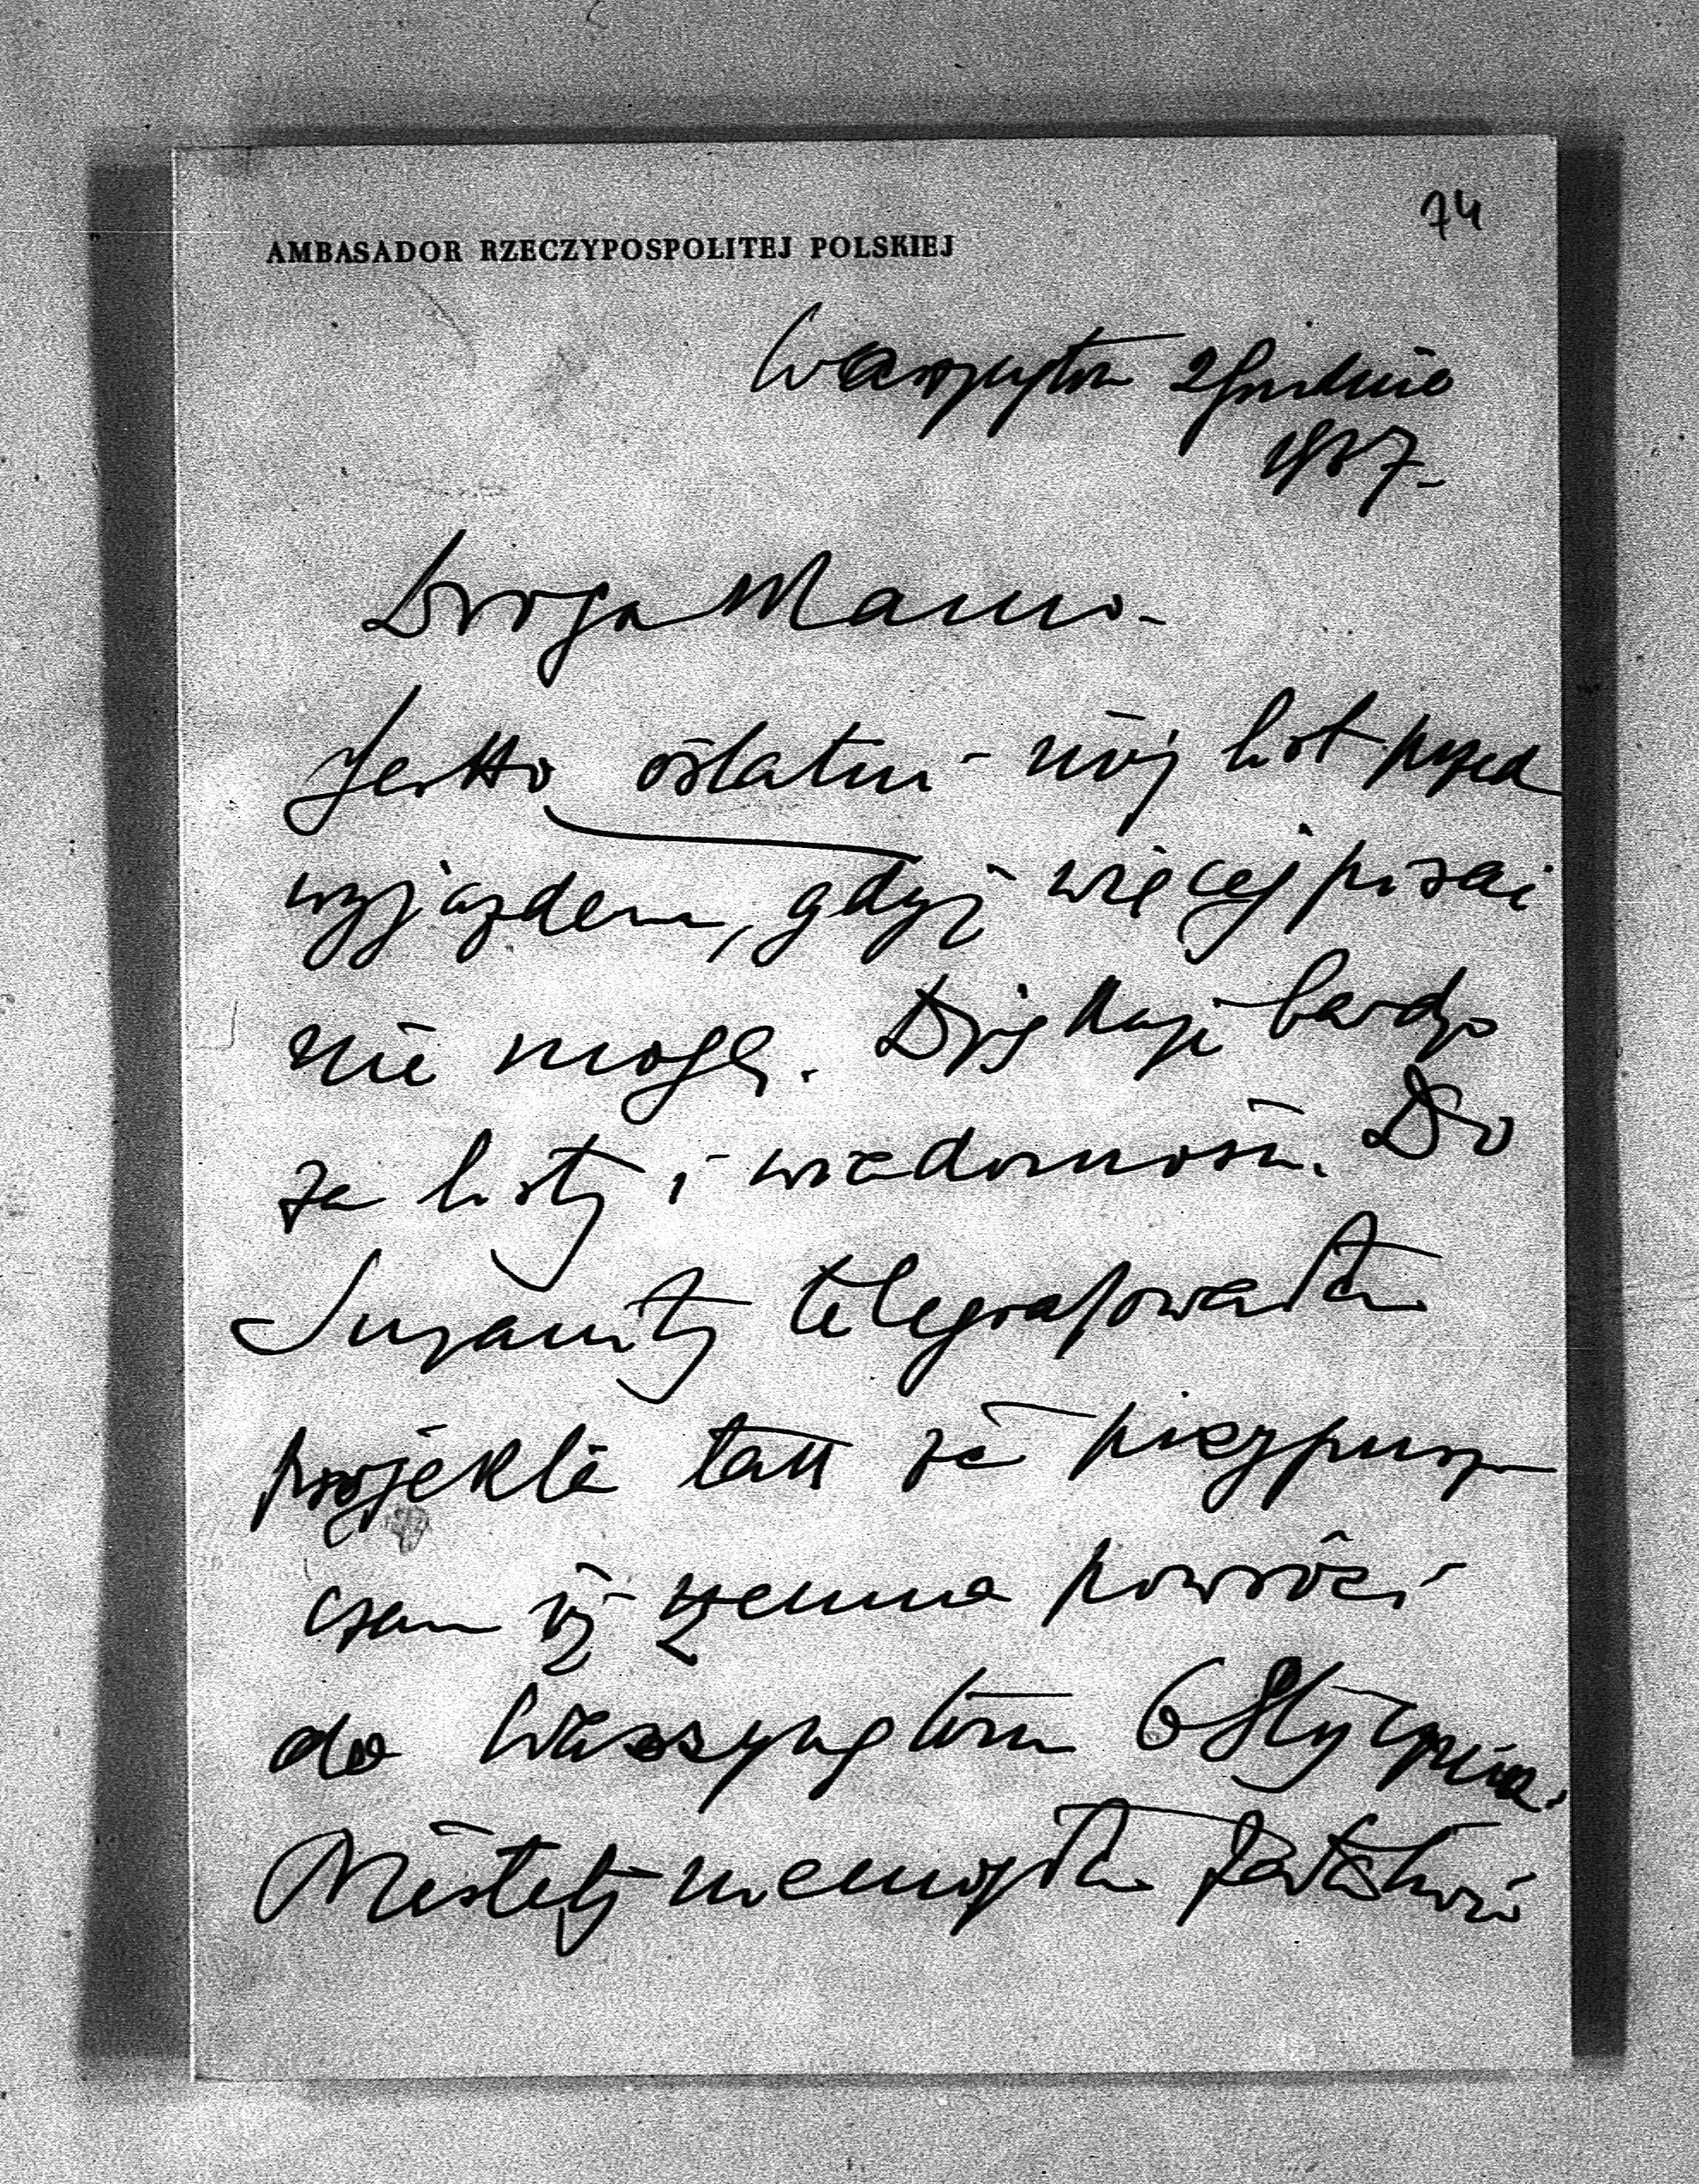 74
AMBASADOR RZECZYPOSPOLITEJ POLSKIEJ
Waszyngton 2 Grudnia
1937-
Droga Mamo-
Jest to ostatni mój list przed
wyjazdem, gdyż więcej pisać
nie mogę. Dziękuję bardzo
za listy i wiadomości. Do
Suzanity telegrafowałem
projekta tak że przypusz
czam iż zemną powróci
do Waszyngtonu 6 Stycznia.
Niestety niemogłem